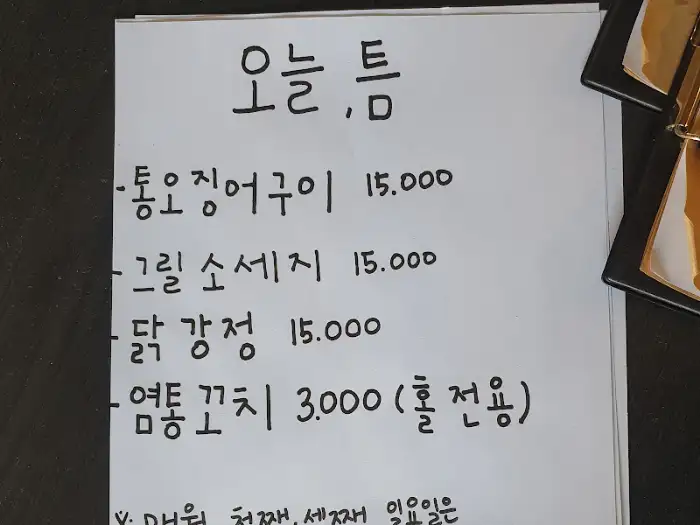 오늘,틈
- 통오징어구이 15.000
- 그릴 소세지 15.000
- 닭강정 15.000
- 염통꼬치 3.000 (홀전용)
※ 매월 첫째, 세째 일요일은